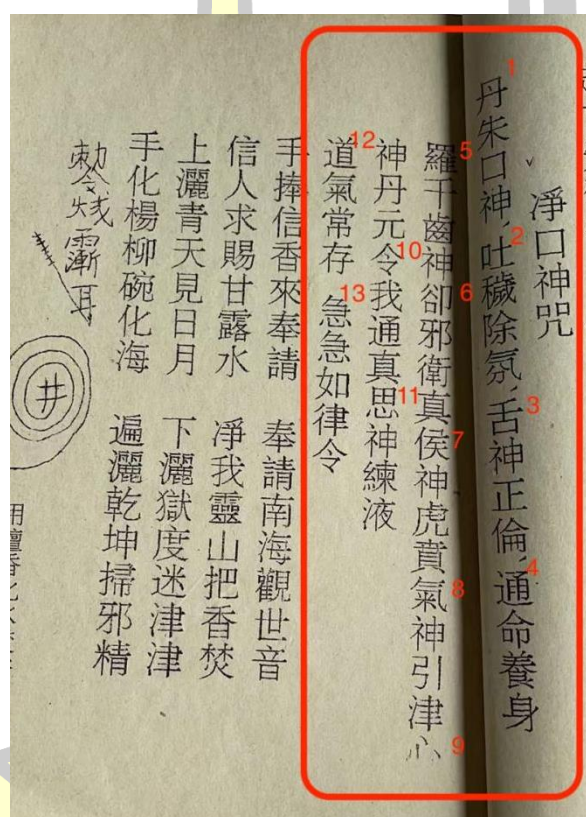 淨口神咒
1丹朱口神,2吐穢除氛,3舌神正倫,4通命養身
5羅千齒神6卻邪衛真7侯神虎賁8氣神引津9心
神丹元10令我通真11思神練液
12道氣常存 13急急如律令
手捧信香來奉請 奉請南海觀世音
信人求賜甘露水 淨我靈山把香焚
上灑青天見日月 下灑獄度迷津津
手化楊柳碗化海 遍灑乾坤掃邪精
勅令
井